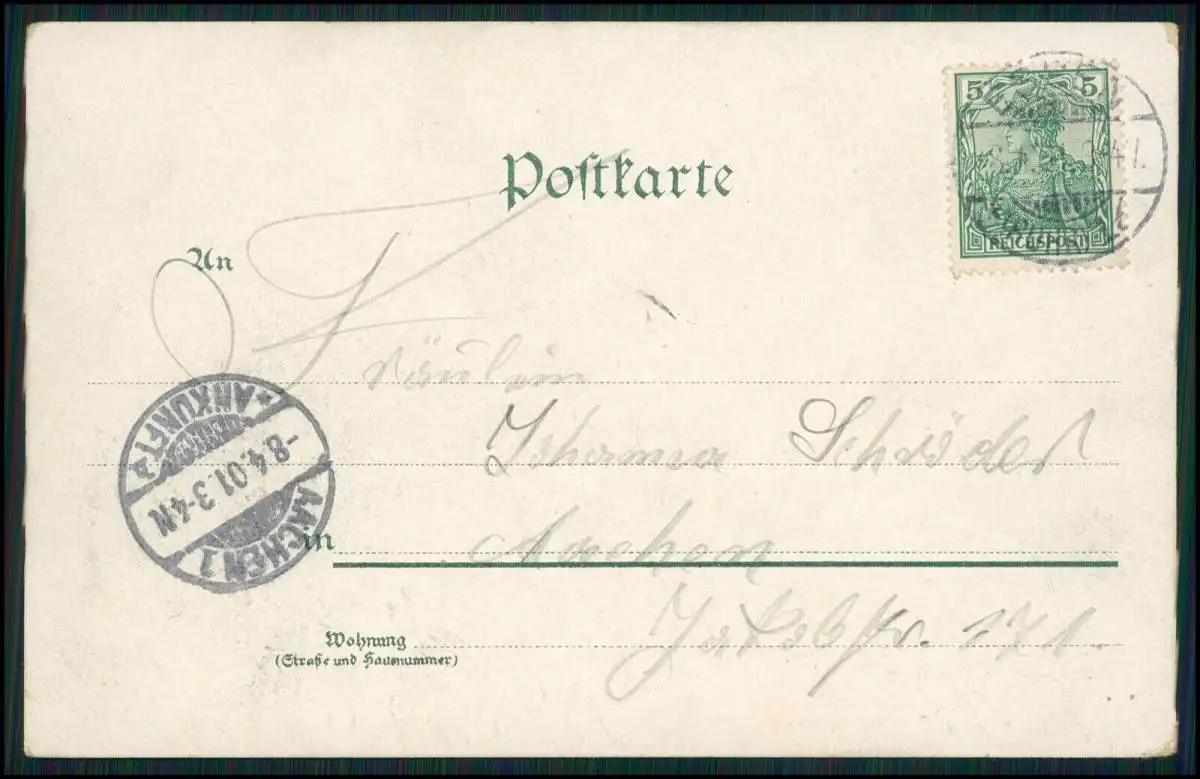 Postkarte
5 5
REICHSPOST
An
Fräulein
Johanna Schröder
in Aachen
Wohnung
(Straße und Hausnummer)
Jakobstr. 171.
ANKUNFT
-8.4.01.3-4N
AACHEN 1